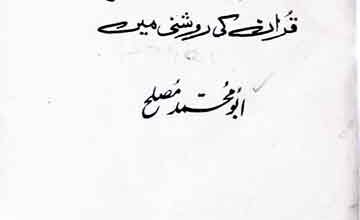 قرآن کی روشنی میں
ابو محمد مصلح